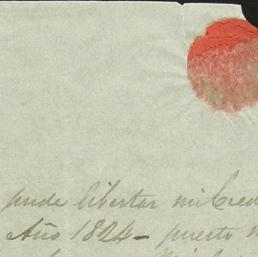 pude libertar mi cred
Año 1824 - puerto